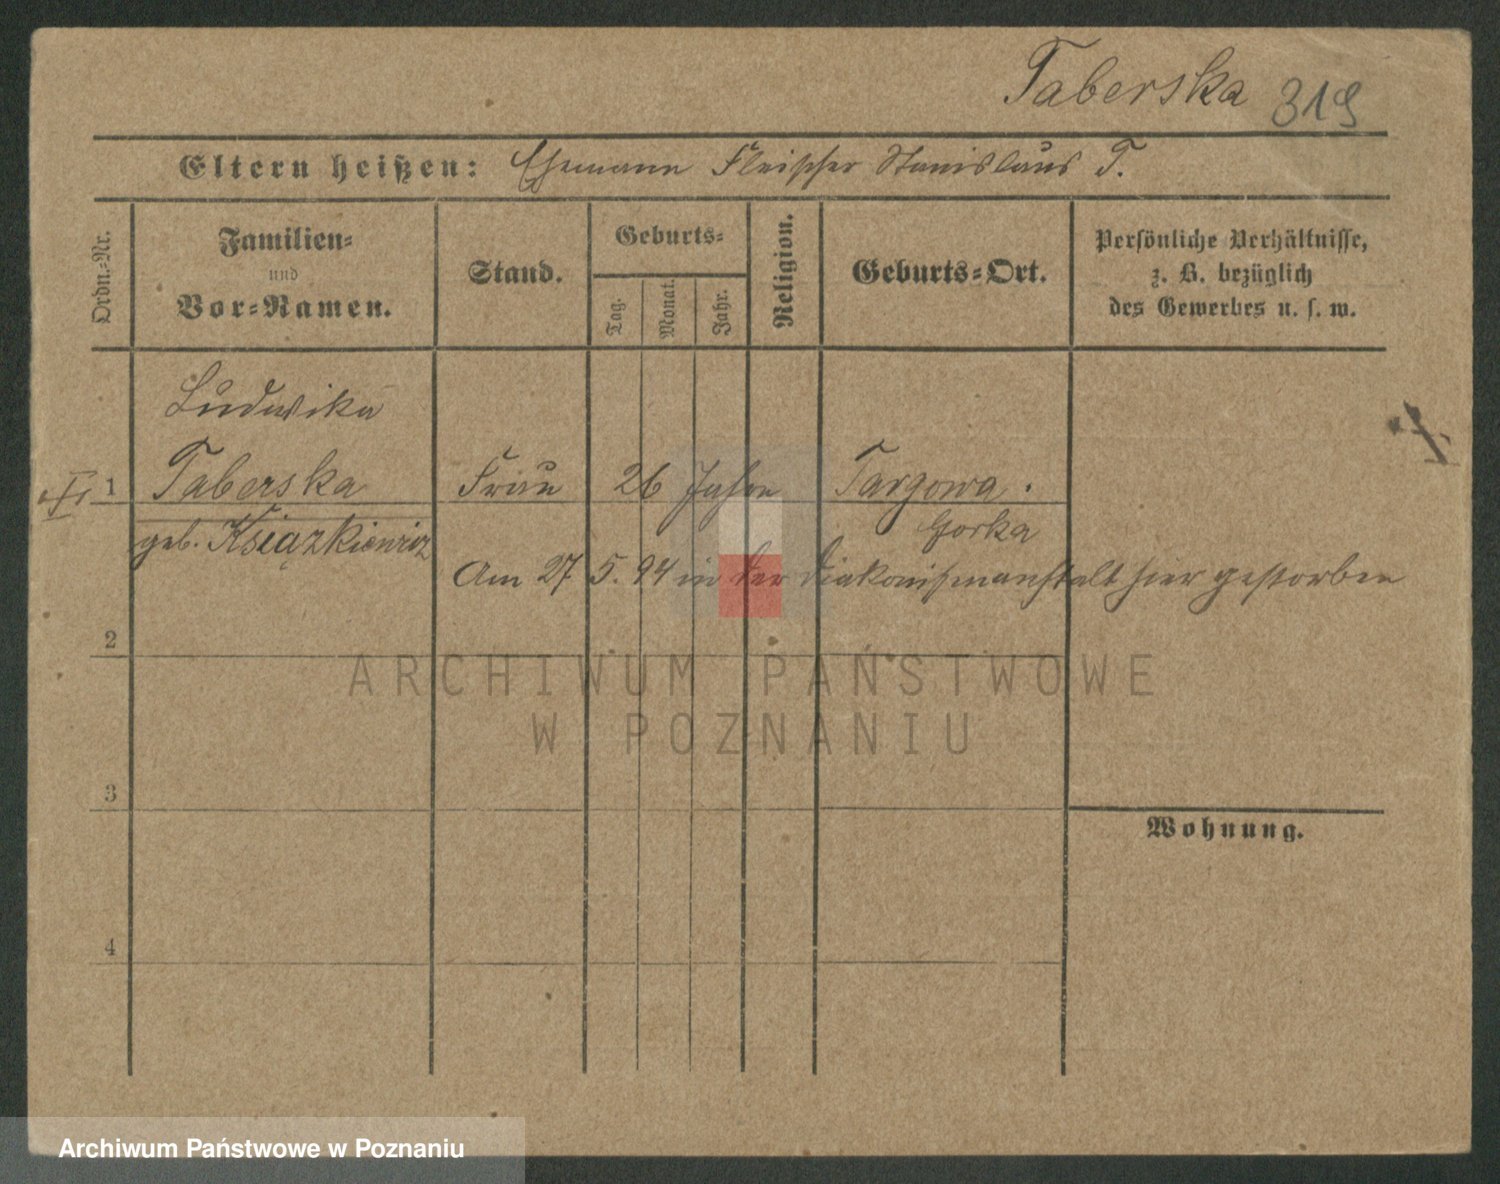 Taberska 319
Eltern heißen: Ehemann Fleischer Stanislaus T.
Ordn.-Nr.
Familien-
und
Vor-Namen.
Stand.
Geburts-
Tag.
Monat.
Jahr.
Religion.
Geburts-Ort.
Persönliche Verhältnisse,
z. B. bezüglich
des Gewerbes u. s. w.
Ludwika
1 Taberska Frau 26 Jahre Targowa
geb. Książkiewicz Gorka
Am 27 5. 94 in der Diakonissenanstalt hier gestorben
2
ARCHIWUM PAŃSTWOWE
W POZNANIU
3
Wohnung.
4
Archiwum Państwowe w Poznaniu